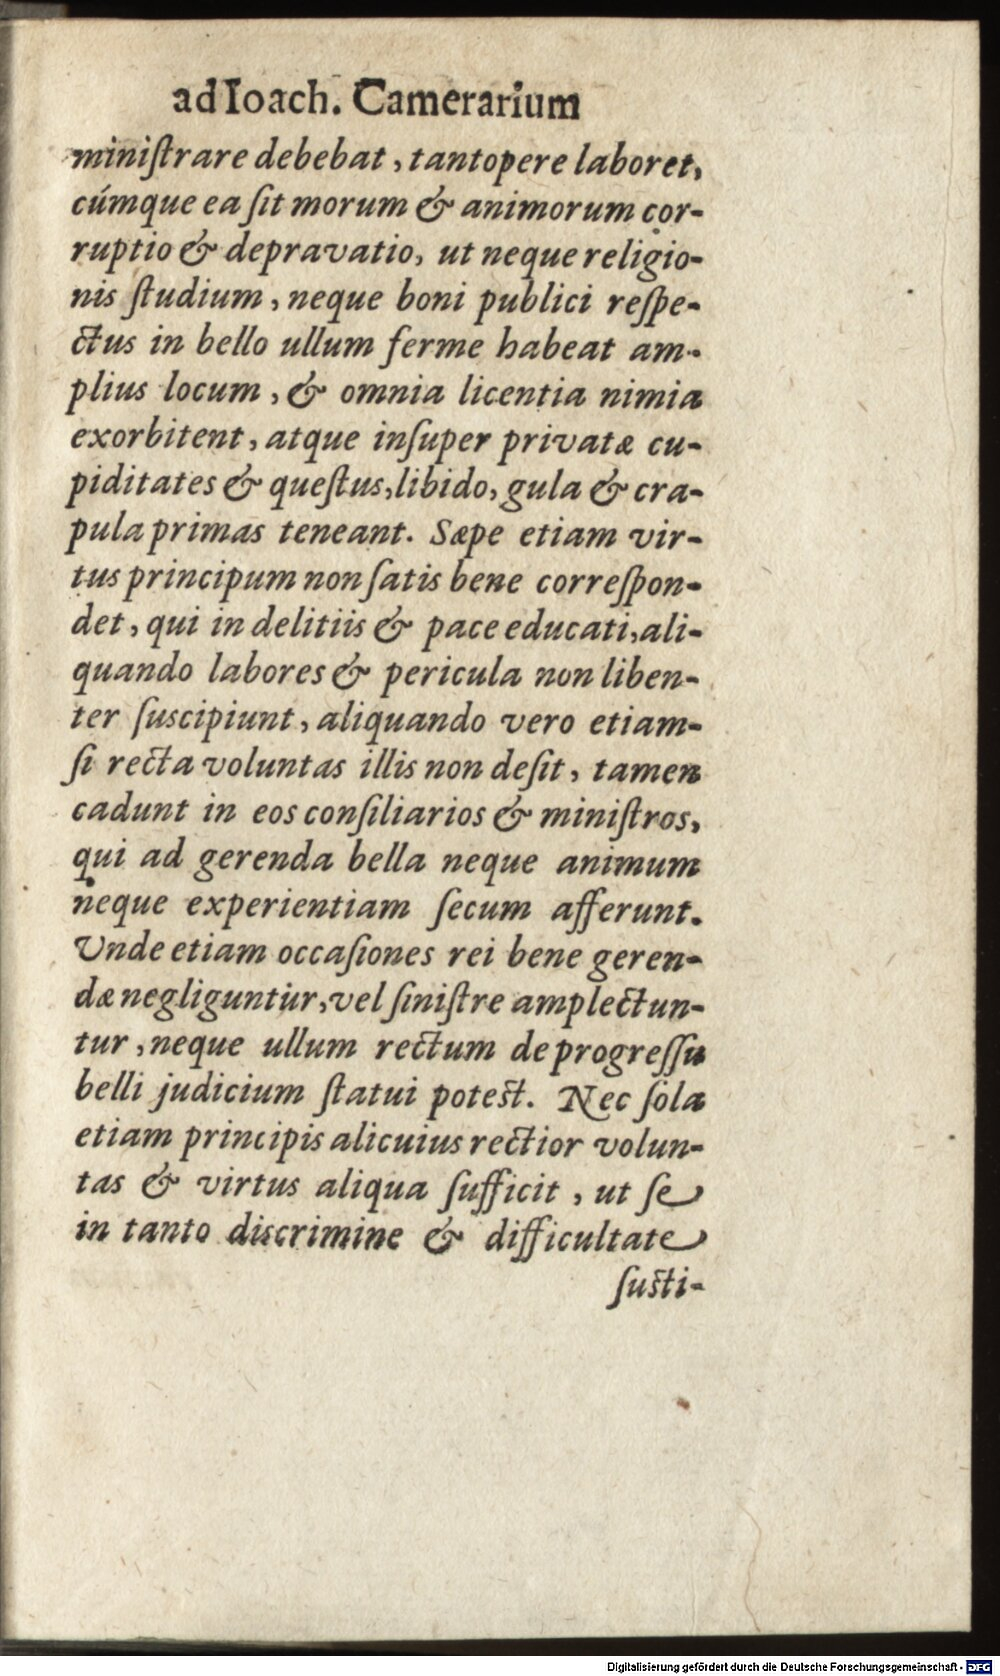 ad Ioach. Camerarium
miniſtrare debebat, tantopere laboret,
cúmque ea ſit morum & animorum cor-
ruptio & depravatio, ut neque religio-
nis ſtudium, neque boni publici reſpe-
ctus in bello ullum ferme habeat am-
plius locum, & omnia licentia nimia
exorbitent, atque inſuper privatæ cu-
piditates & queſtus, libido, gula & cra-
pula primas teneant. Sæpe etiam vir-
tus principum non ſatis bene correſpon-
det, qui in delitiis & pace educati, ali-
quando labores & pericula non liben-
ter ſuscipiunt, aliquando vero etiam-
ſi recta voluntas illis non deſit, tamen
cadunt in eos conſiliarios & miniſtros,
qui ad gerenda bella neque animum
neque experientiam ſecum afferunt.
Unde etiam occaſiones rei bene geren-
dæ negliguntur, vel ſiniſtre amplectun-
tur, neque ullum rectum de progreſſu
belli judicium ſtatui potest. Nec ſola
etiam principis alicuius rectior volun-
tas & virtus aliqua ſufficit, ut ſe
in tanto discrimine & difficultate
ſusti-
Digitalisierung gefördert durch die Deutsche Forschungsgemeinschaft - DFG